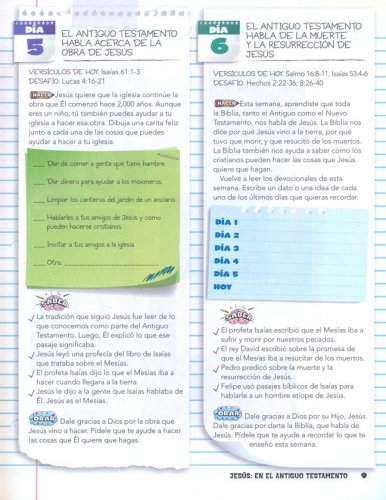 DÍA
5
EL ANTIGUO TESTAMENTO
HABLA ACERCA DE LA
OBRA DE JESÚS
VERSÍCULOS DE HOY Isaías 61:1-3
DESAFÍO: Lucas 4:16-21
HACER Jesús quiere que la iglesia continúe la
obra que Él comenzó hace 2,000 años. Aunque
eres un niño, tú también puedes ayudar a tu
iglesia a hacer esa obra. Dibuja una carita feliz
junto a cada una de las cosas que puedes
ayudar a hacer a tu iglesia.
___ Dar de comer a gente que tiene hambre.
___ Dar dinero para ayudar a los misioneros.
___ Limpiar los canteros del jardín de un anciano.
___ Hablarles a tus amigos de Jesús y cómo
pueden hacerse cristianos.
___ Invitar a tus amigos a la iglesia.
___ Otra
SABER
✓ La tradición que siguió Jesús fue leer de lo
que conocemos como parte del Antiguo
Testamento. Luego, Él explicó lo que ese
pasaje significaba.
✓ Jesús leyó una profecía del libro de Isaías
que trataba sobre el Mesías.
✓ El profeta Isaías dijo lo que el Mesías iba a
hacer cuando llegara a la tierra.
✓ Jesús le dijo a la gente que Isaías hablaba de
Él. Jesús es el Mesías.
ORAR Dale gracias a Dios por la obra que
Jesús vino a hacer. Pídele que te ayude a hacer
las cosas que Él quiere que hagas.
DÍA
6
EL ANTIGUO TESTAMENTO
HABLA DE LA MUERTE
Y LA RESURRECCIÓN DE
JESÚS
VERSÍCULOS DE HOY Salmo 16:8-11; Isaías 53:4-6
DESAFÍO: Hechos 2:22-36; 8:26-40
HACER Esta semana, aprendiste que toda
la Biblia, tanto el Antiguo como el Nuevo
Testamento, nos habla de Jesús. La Biblia nos
dice por qué Jesús vino a la tierra, por qué
tuvo que morir, y que resucitó de los muertos.
La Biblia también nos ayuda a saber cómo los
cristianos pueden hacer las cosas que Jesús
quiere que hagan.
Vuelve a leer los devocionales de esta
semana. Escribe un dato o una idea de cada
uno de los últimos días que quieras recordar.
DÍA 1
DÍA 2
DÍA 3
DÍA 4
DÍA 5
HOY
SABER
✓ El profeta Isaías escribió que el Mesías iba a
sufrir y morir por nuestros pecados.
✓ El rey David escribió sobre la promesa de
que el Mesías iba a resucitar de los muertos.
✓ Pedro predicó sobre la muerte y la
resurrección de Jesús.
✓ Felipe usó pasajes bíblicos de Isaías para
hablarle a un hombre etíope de Jesús.
ORAR Dale gracias a Dios por su Hijo, Jesús.
Dale gracias por darte la Biblia, que habla de
Jesús. Pídele que te ayude a recordar lo que te
enseñó esta semana.
JESÚS: EN EL ANTIGUO TESTAMENTO 9